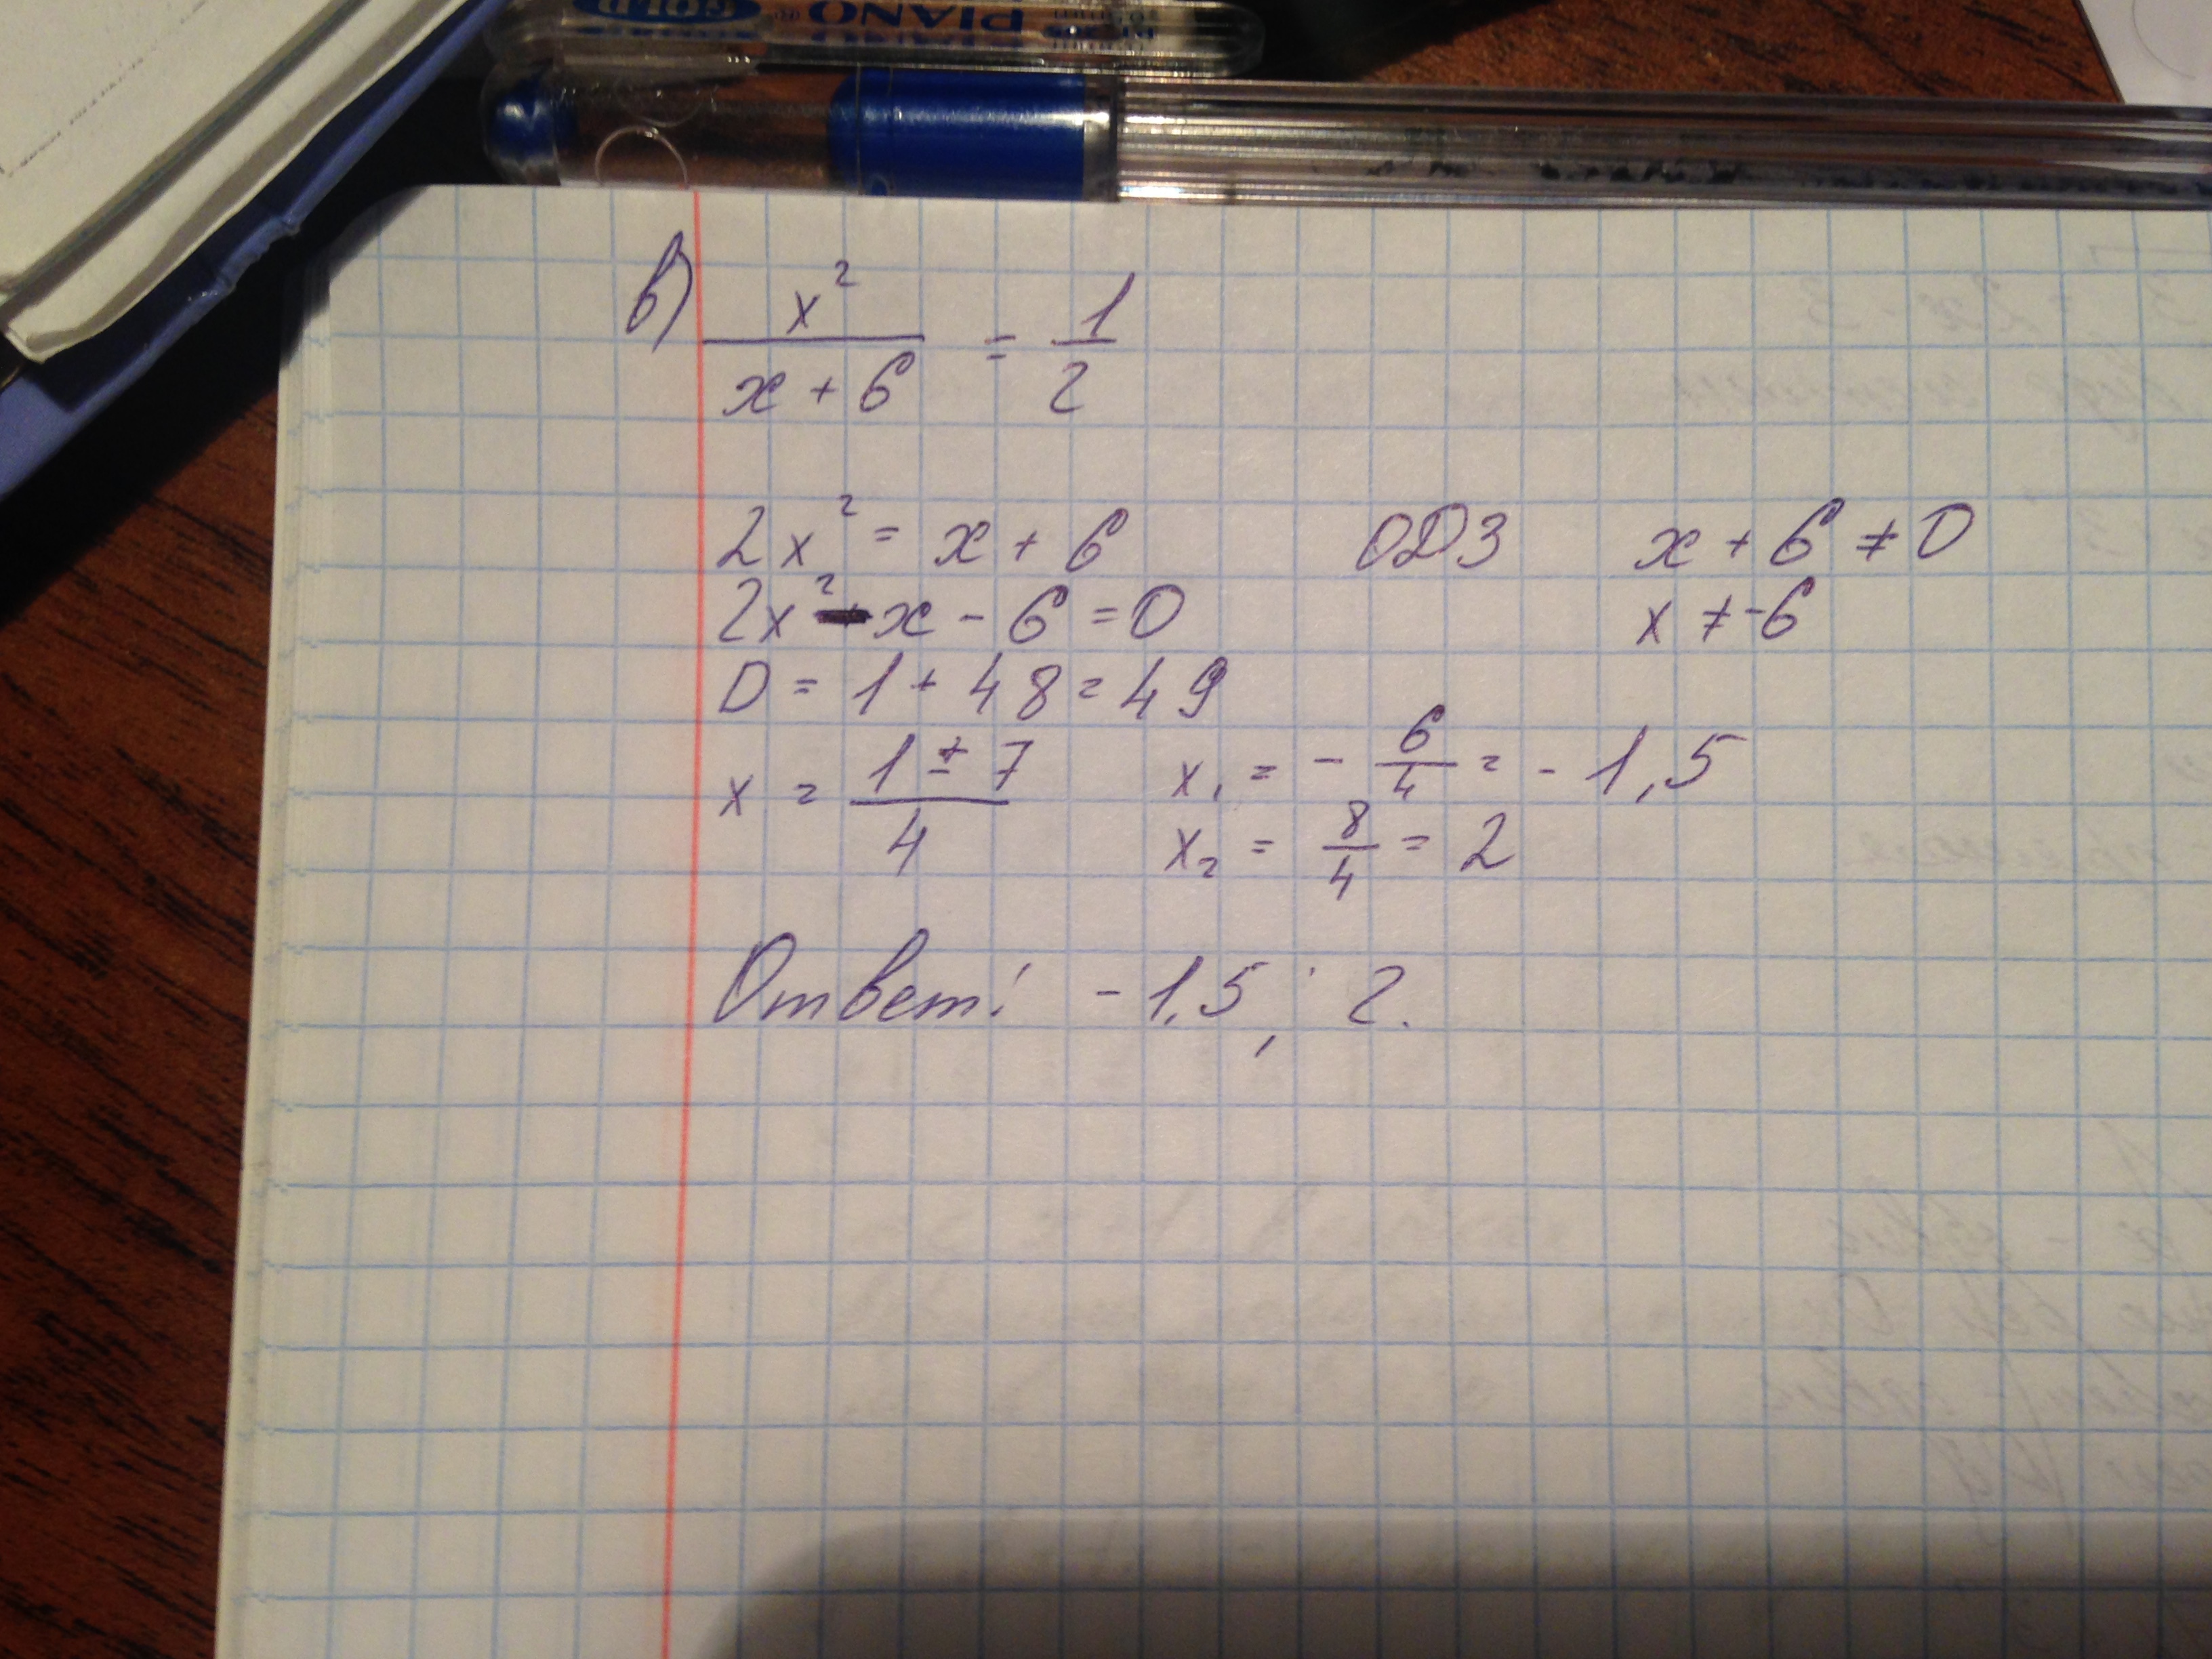 GOLD PIANO
в) x² / (x + 6) = 1/2
2x² = x + 6 ОДЗ x + 6 ≠ 0
2x² - x - 6 = 0 x ≠ -6
D = 1 + 48 = 49
x = (1 ± 7) / 4 x₁ = - 6/4 = - 1,5
x₂ = 8/4 = 2
Ответ: -1,5; 2.